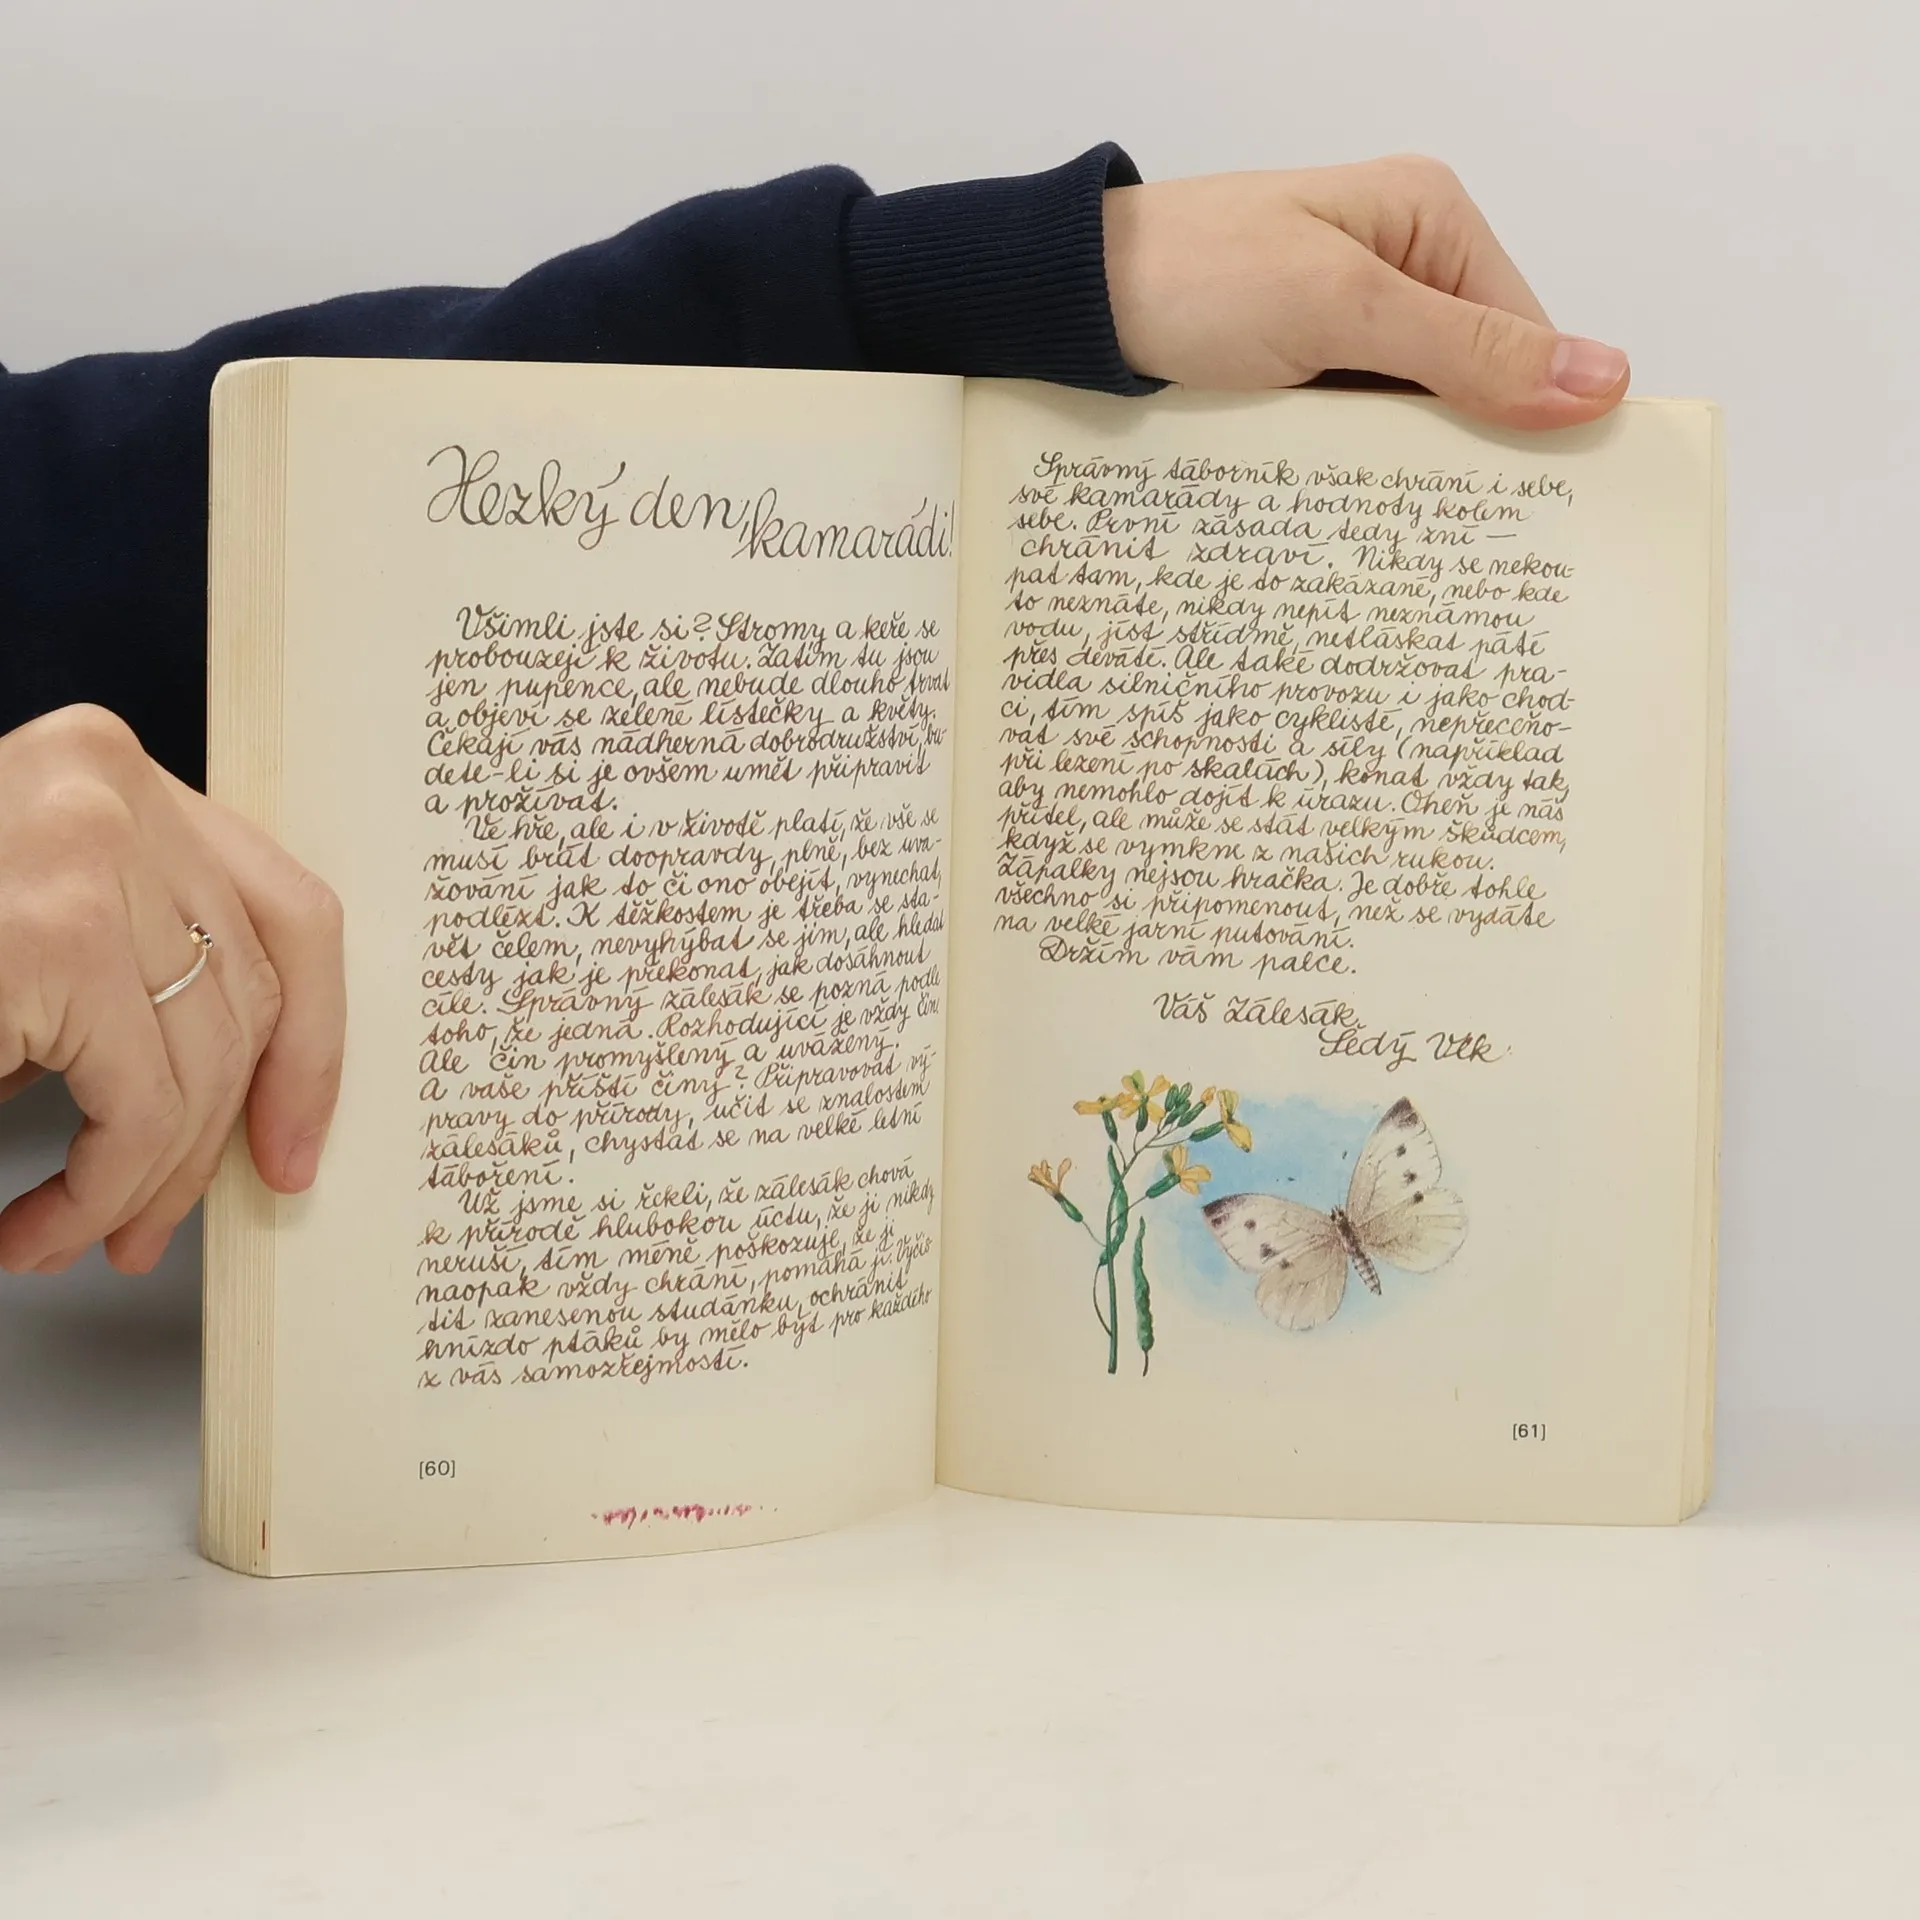 Hezký den,
kamarádi!
Všimli jste si? Stromy a keře se
probouzejí k životu. Zatím tu jsou
jen pupence, ale nebude dlouho trvat
a objeví se zelené lístečky a květy.
Čekají vás nádherná dobrodružství, bu-
dete-li si je ovšem umět připravit
a prožívat.
Ve hře, ale i v životě platí, že vše se
musí brát doopravdy, plně, bez uva-
žování jak to či ono obejít, vynechat,
podlézt. K těžkostem je třeba se sta-
vět čelem, nevyhýbat se jim, ale hledat
cesty jak je překonat, jak dosáhnout
cíle. Správný zálesák se pozná podle
toho, že jedná. Rozhodující je vždy čin.
Ale čin promyšlený a uvážený.
A vaše příští činy? Připravovat vý-
pravy do přírody, učit se znalostem
zálesáků, chystat se na velké letní
táboření.
Už jsme si řekli, že zálesák chová
k přírodě hlubokou úctu, že ji nikdy
neruší, tím méně poškozuje, že ji
naopak vždy chrání, pomáhá jí. Vyčis-
tit zanesenou studánku, ochránit
hnízdo ptáků by mělo být pro každého
z vás samozřejmostí.
[60]
Správný táborník však chrání i sebe,
své kamarády a hodnoty kolem
sebe. První zásada tedy zní —
chránit zdraví. Nikdy se nekou-
pat tam, kde je to zakázané, nebo kde
to neznáte, nikdy nepít neznámou
vodu, jíst střídmě, netláskat páté
přes deváté. Ale také dodržovat pra-
vidla silničního provozu i jako chod-
ci, tím spíš jako cyklisté, nepřeceňo-
vat své schopnosti a síly (například
při lezení po skalách), konat vždy tak,
aby nemohlo dojít k úrazu. Oheň je náš
přítel, ale může se stát velkým škůdcem,
když se vymkne z našich rukou.
Zápalky nejsou hračka. Je dobře tohle
všechno si připomenout, než se vydáte
na velké jarní putování.
Držím vám palce.
Váš Zálesák
Šedý Vlk
[61]